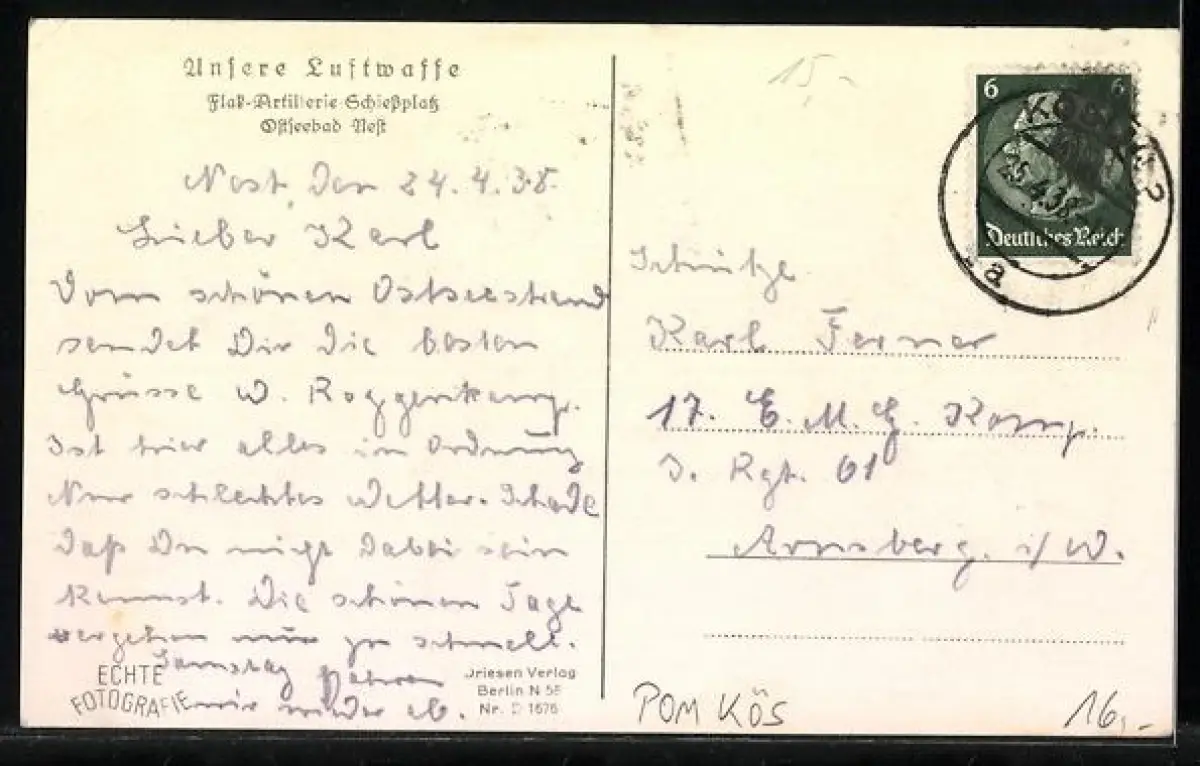 Unsere Luftwaffe
Flak-Artillerie-Schießplatz
Ostseebad Nest
Nest, den 24.4.38.
Lieber Karl
Vom schönen Ostseestrand
sendet Dir die besten
Grüsse W. Roggenkamp.
Ist hier alles in Ordnung
Nur schlechtes Wetter. Schade
daß Du nicht dabei sein
kannst. Die schönen Tage
vergehen nur zu schnell.
Samstag fahren
wir wieder ab.
ECHTE
FOTOGRAFIE
Jriesen Verlag
Berlin N 58
Nr. D 1676
15,-
6 6
Deutsches Reich
25.4.38
a
Schütze
Karl Ferner
17. E. M. G. Komp.
J. Rgt. 61
Arnsberg. i/W.
POM KÖS
16,-